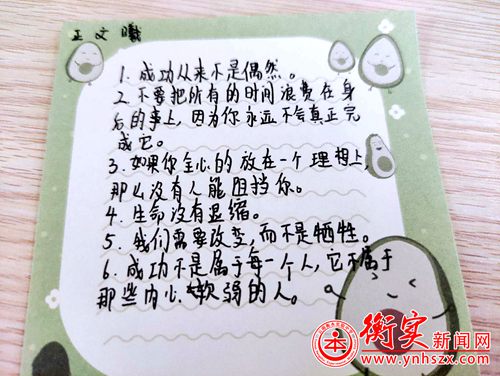 王文曦
1. 成功从来不是偶然。
2. 不要把所有的时间浪费在身
后的事上,因为你永远不会真正完
成它。
3. 如果你全心的放在一个理想上,
那么没有人能阻挡你。
4. 生命没有显缩。
5. 我们需要改变,而不是牺牲。
6. 成功不是属于每一个人,它不属于
那些内心软弱的人。
衡实新闻网
www.ynhszx.com